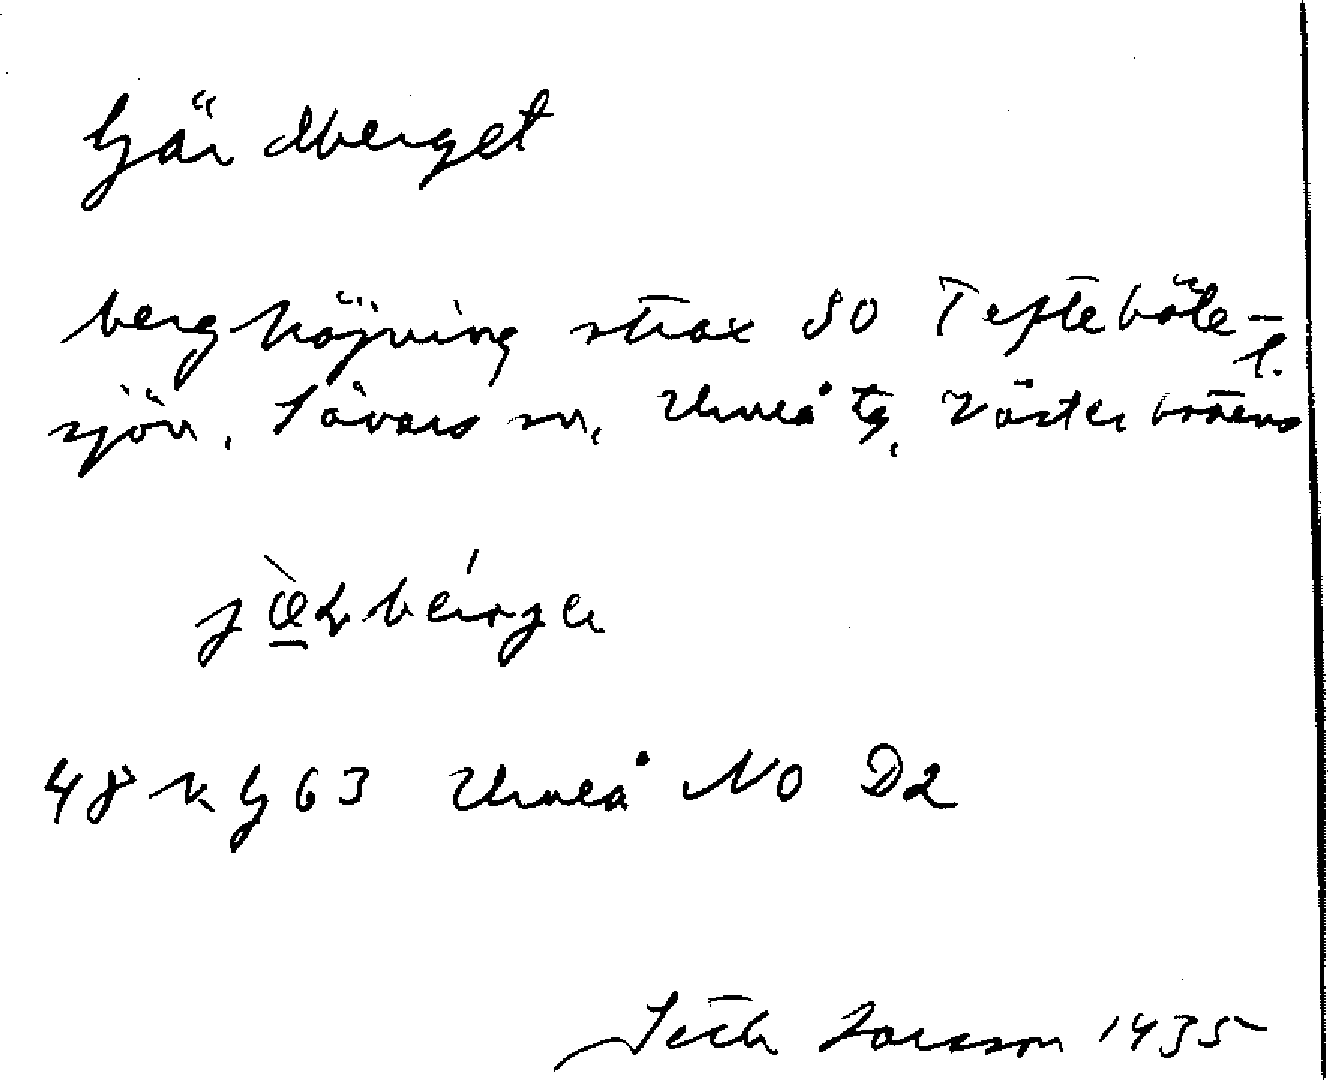 Gärdberget
berghöjning strax SO Tefteböle-
sjön, Sävars sn, Umeå tg, Västerbottens l.
48 k g 63 Umeå NO D2
Seth Larsson 1935